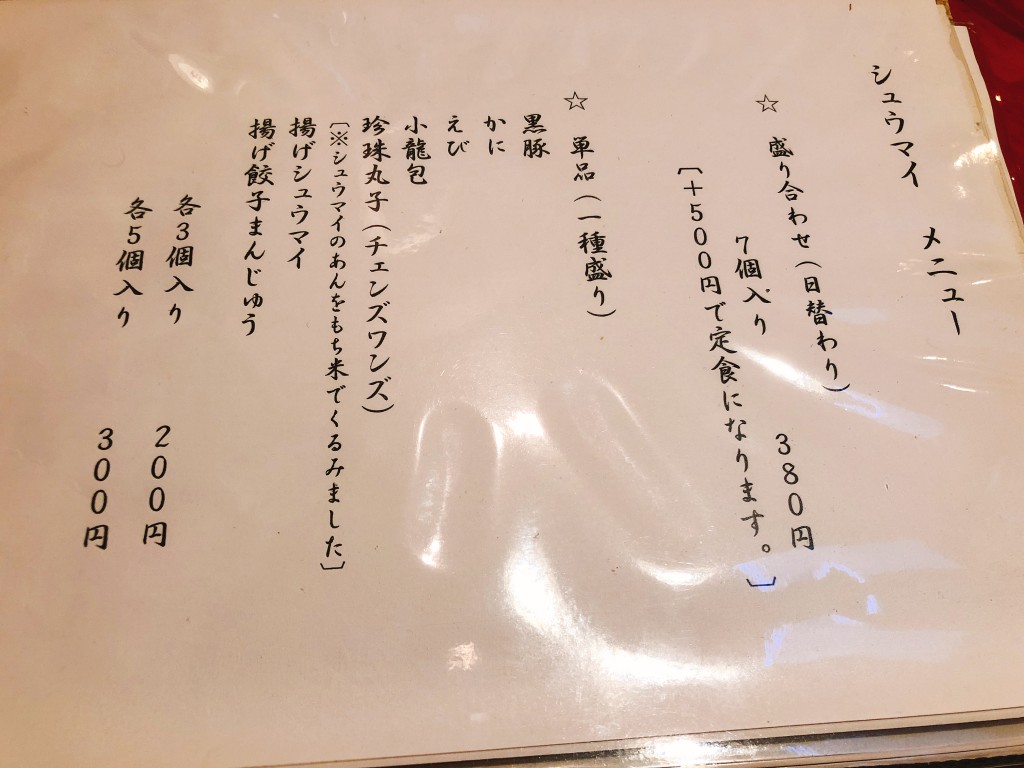 シュウマイ メニュー
☆ 盛り合わせ(日替わり) 380円
7個入り
〔+500円で定食になります。〕
☆ 単品(一種盛り)
黒豚
かに
えび
小龍包
珍珠丸子(チェンズワンズ)
〔※シュウマイのあんをもち米でくるみました〕
揚げシュウマイ
揚げ餃子まんじゅう
各3個入り 200円
各5個入り 300円